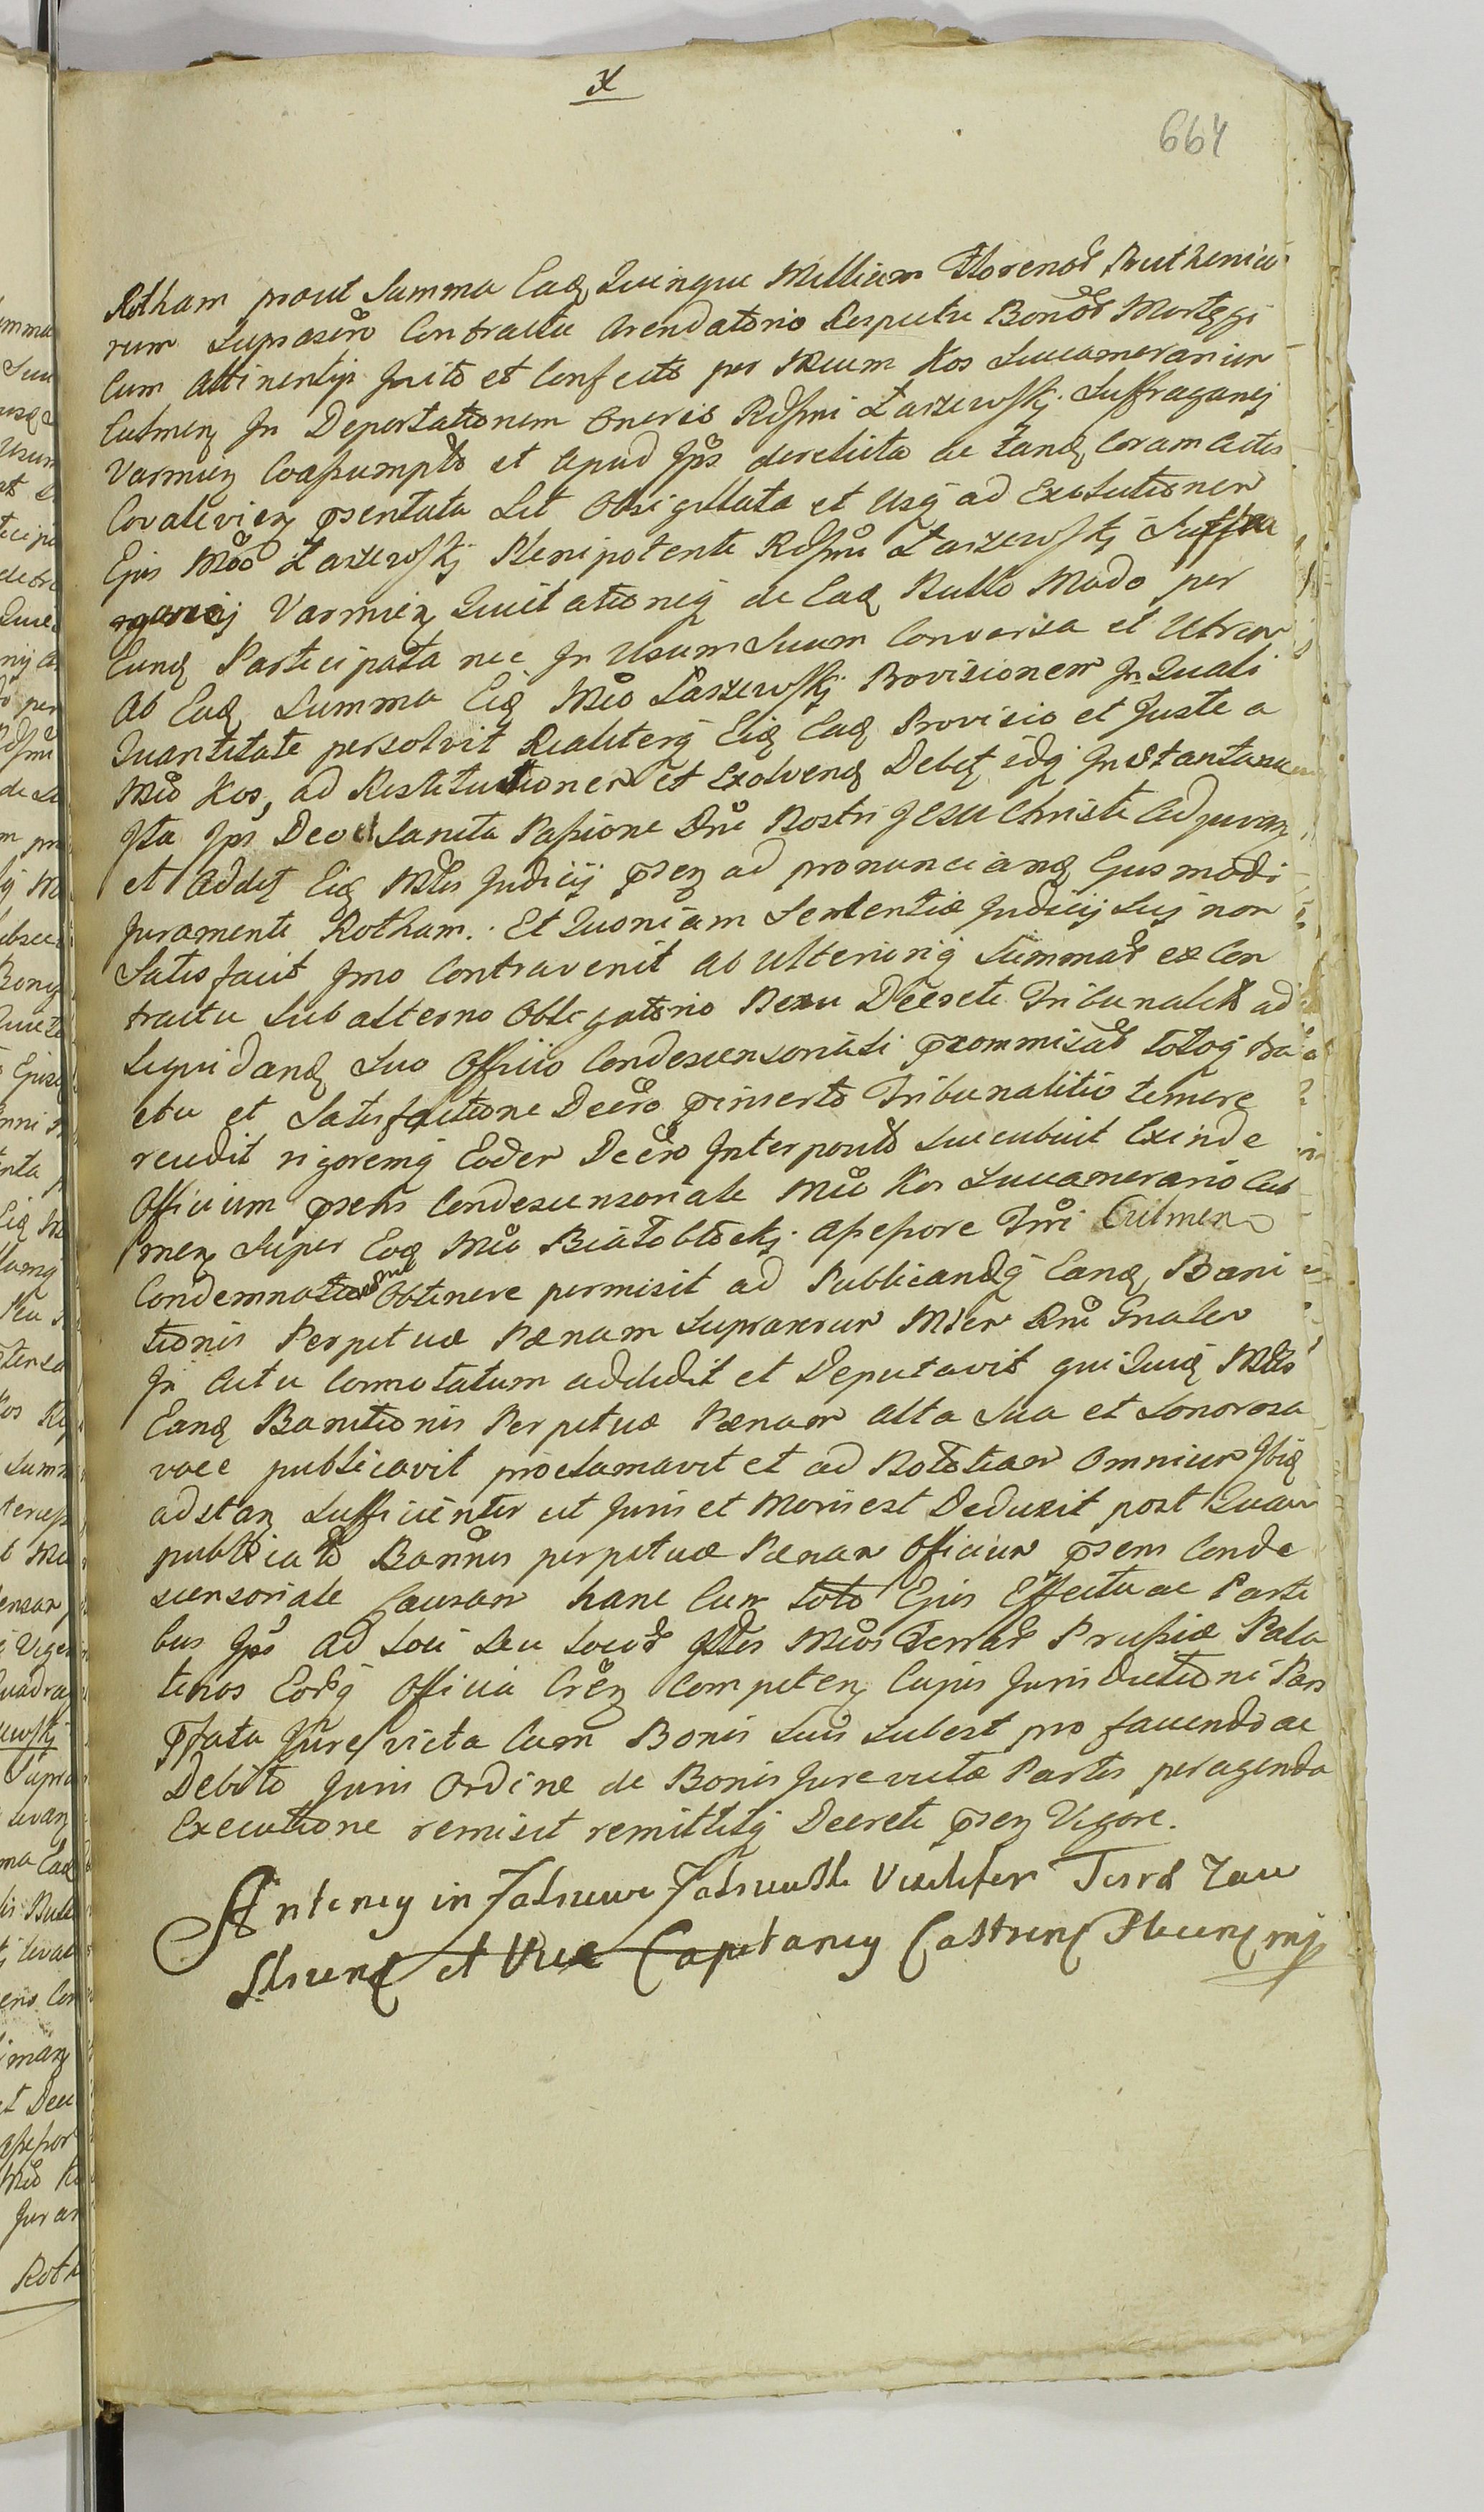 X
664
Rotham prout Summa Eaq Quinque Millium Floreno Prutheni
rum Suprascro Contractu Arendatorio Respectu Bono Mortęgi
Cum Attinentijs Inito et Confecto per Mcum Kos Succamerarium
Culmen In Deportationem Oneris Rdssmi Łaszewskj Suffraganej
Varmien Coassumpto et Apud Ips derelicta ac tanq Coram Actis
Covalevien psentata Sit Obsigillata et Usq ad Exolutionem
Ejus Mco Łaszewskj Plenipotenti Rdssmi Łaszewskj Suffra
ganej Varmien Quietationiq de Eaq Nullo Modo per
Eunq Participata nec In Usum Suum Conversa et Utrum
Ab Eaq Summa Eiq Mco Łaszewskj Provisionem In Quali
Quantitate persolvit Realiterq Eiq Eaq Provisio et Juste a
Mco Kos, ad Restitutionem et Exolvenq Debet idq Instantanee
Ita Ips Deo et Sancta Passione Dni Nostri Jesu Christi Adjuvan
et Addet Eiq Mtes Judicij psen ad pronuncianq Ejusmodi
Juramenti Rotham. Et Quoniam Sententiæ Judicij Sui non
Satisfacit Imo Contravenit ab Ulteriorig Summa ex Con
tractu Subalterno Obligatorio Nexu Decreti Tribunalis ad
Liquidanq Suo Officio Condescensoriali prommisa totoq tra
ctu et Satisfactione Decro pinserto Tribunalitio temere
recedit rigoremq Eodem Decro Interposito Succubuit Exinde
Officium psens Condescensoriale Mco Kos Succamerario Cul
men Super Eoq Mco Białobłockj Assessore Tri Culmen
Condemnationem Obtinere permisit ad Publicandq Eanq Bani
tionis Perpetuæ Pænam Supranrum Mtem Rni Gnalem
In Actu Connotatum addidit et Deputavit qui Quiq Mtes
Eanq Banitionis Perpetuæ Pænam alta Sua et Sonorosa
voce publicavit proclamavit et ad Notitiam Omnium Ibiq
adstan Sufficienter ut Juris et Moris est Deduxit post Quam
publicato Bannis perpetuæ Pænam Officium psens Conde
scensoriale Causam hanc Cum toto Ejus Effectu ac Parti
bus Ips ad Loci Seu Loco Istes Mcos Terra Prussiæ Pala
tinos Eorq Officia Cren Competen Cujus Jurisdictioni Pars
pfata Jure victa Cum Bonis Suis Subest pro facienda ac
Debito Juris Ordine de Bonis Jurevictæ Partis peragenda
Executione remisit remittitq Decreti psen Vigore.
Antoney in Vexilifer Terra
et Vice Capitaney Castren mp